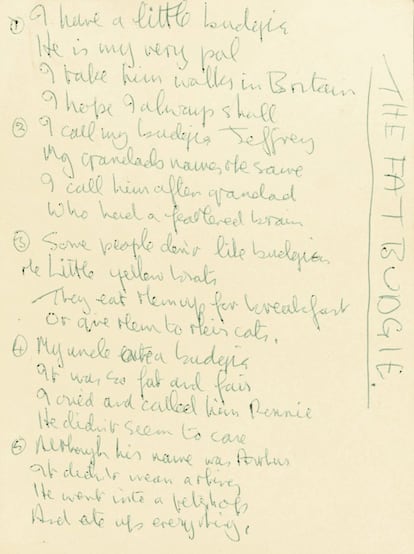 THE FAT BUDGIE.
① I have a little budgie
He is my very pal
I take him walks in Britain
I hope I always shall
② I call my budgie Jeffrey
My grandads name's the same
I call him after grandad
Who had a feathered brain
③ Some people don't like budgies
the little yellow brats
They eat them up for breakfast
Or give them to their cats.
④ My uncle ate a budgie
It was so fat and fair
I cried and called him Ronnie
He didn't seem to care
⑤ Although his name was Arthur
It didn't mean a thing
He went into a petshop
And ate up everything.